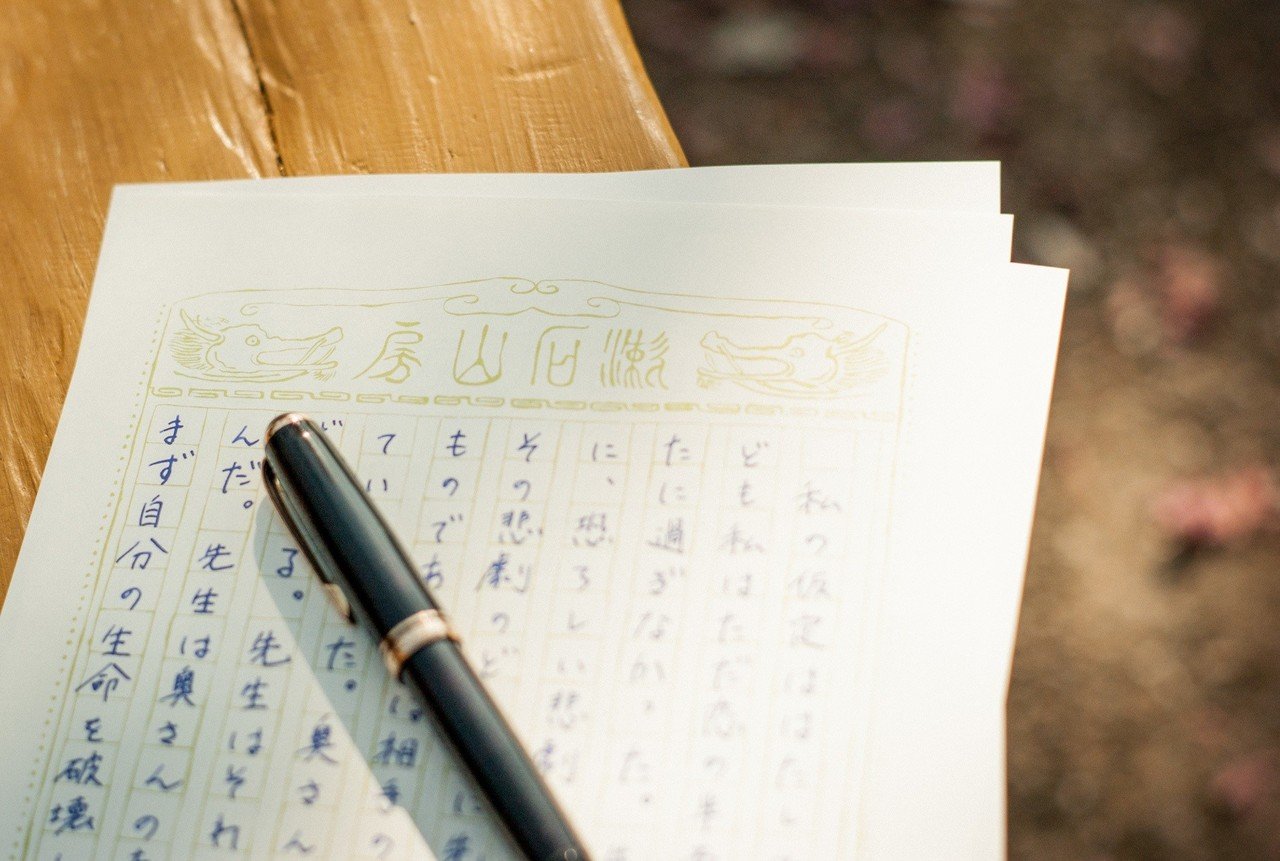 漱石山房
私の仮定ははたし
ども私はただ恋の半
たに過ぎなかった。
に、恐ろしい悲劇
その悲劇のど に先
ものであ は相手の
てい た。奥さん
ど る。先生はそれ
んだ。先生は奥さんの
まず自分の生命を破壊し